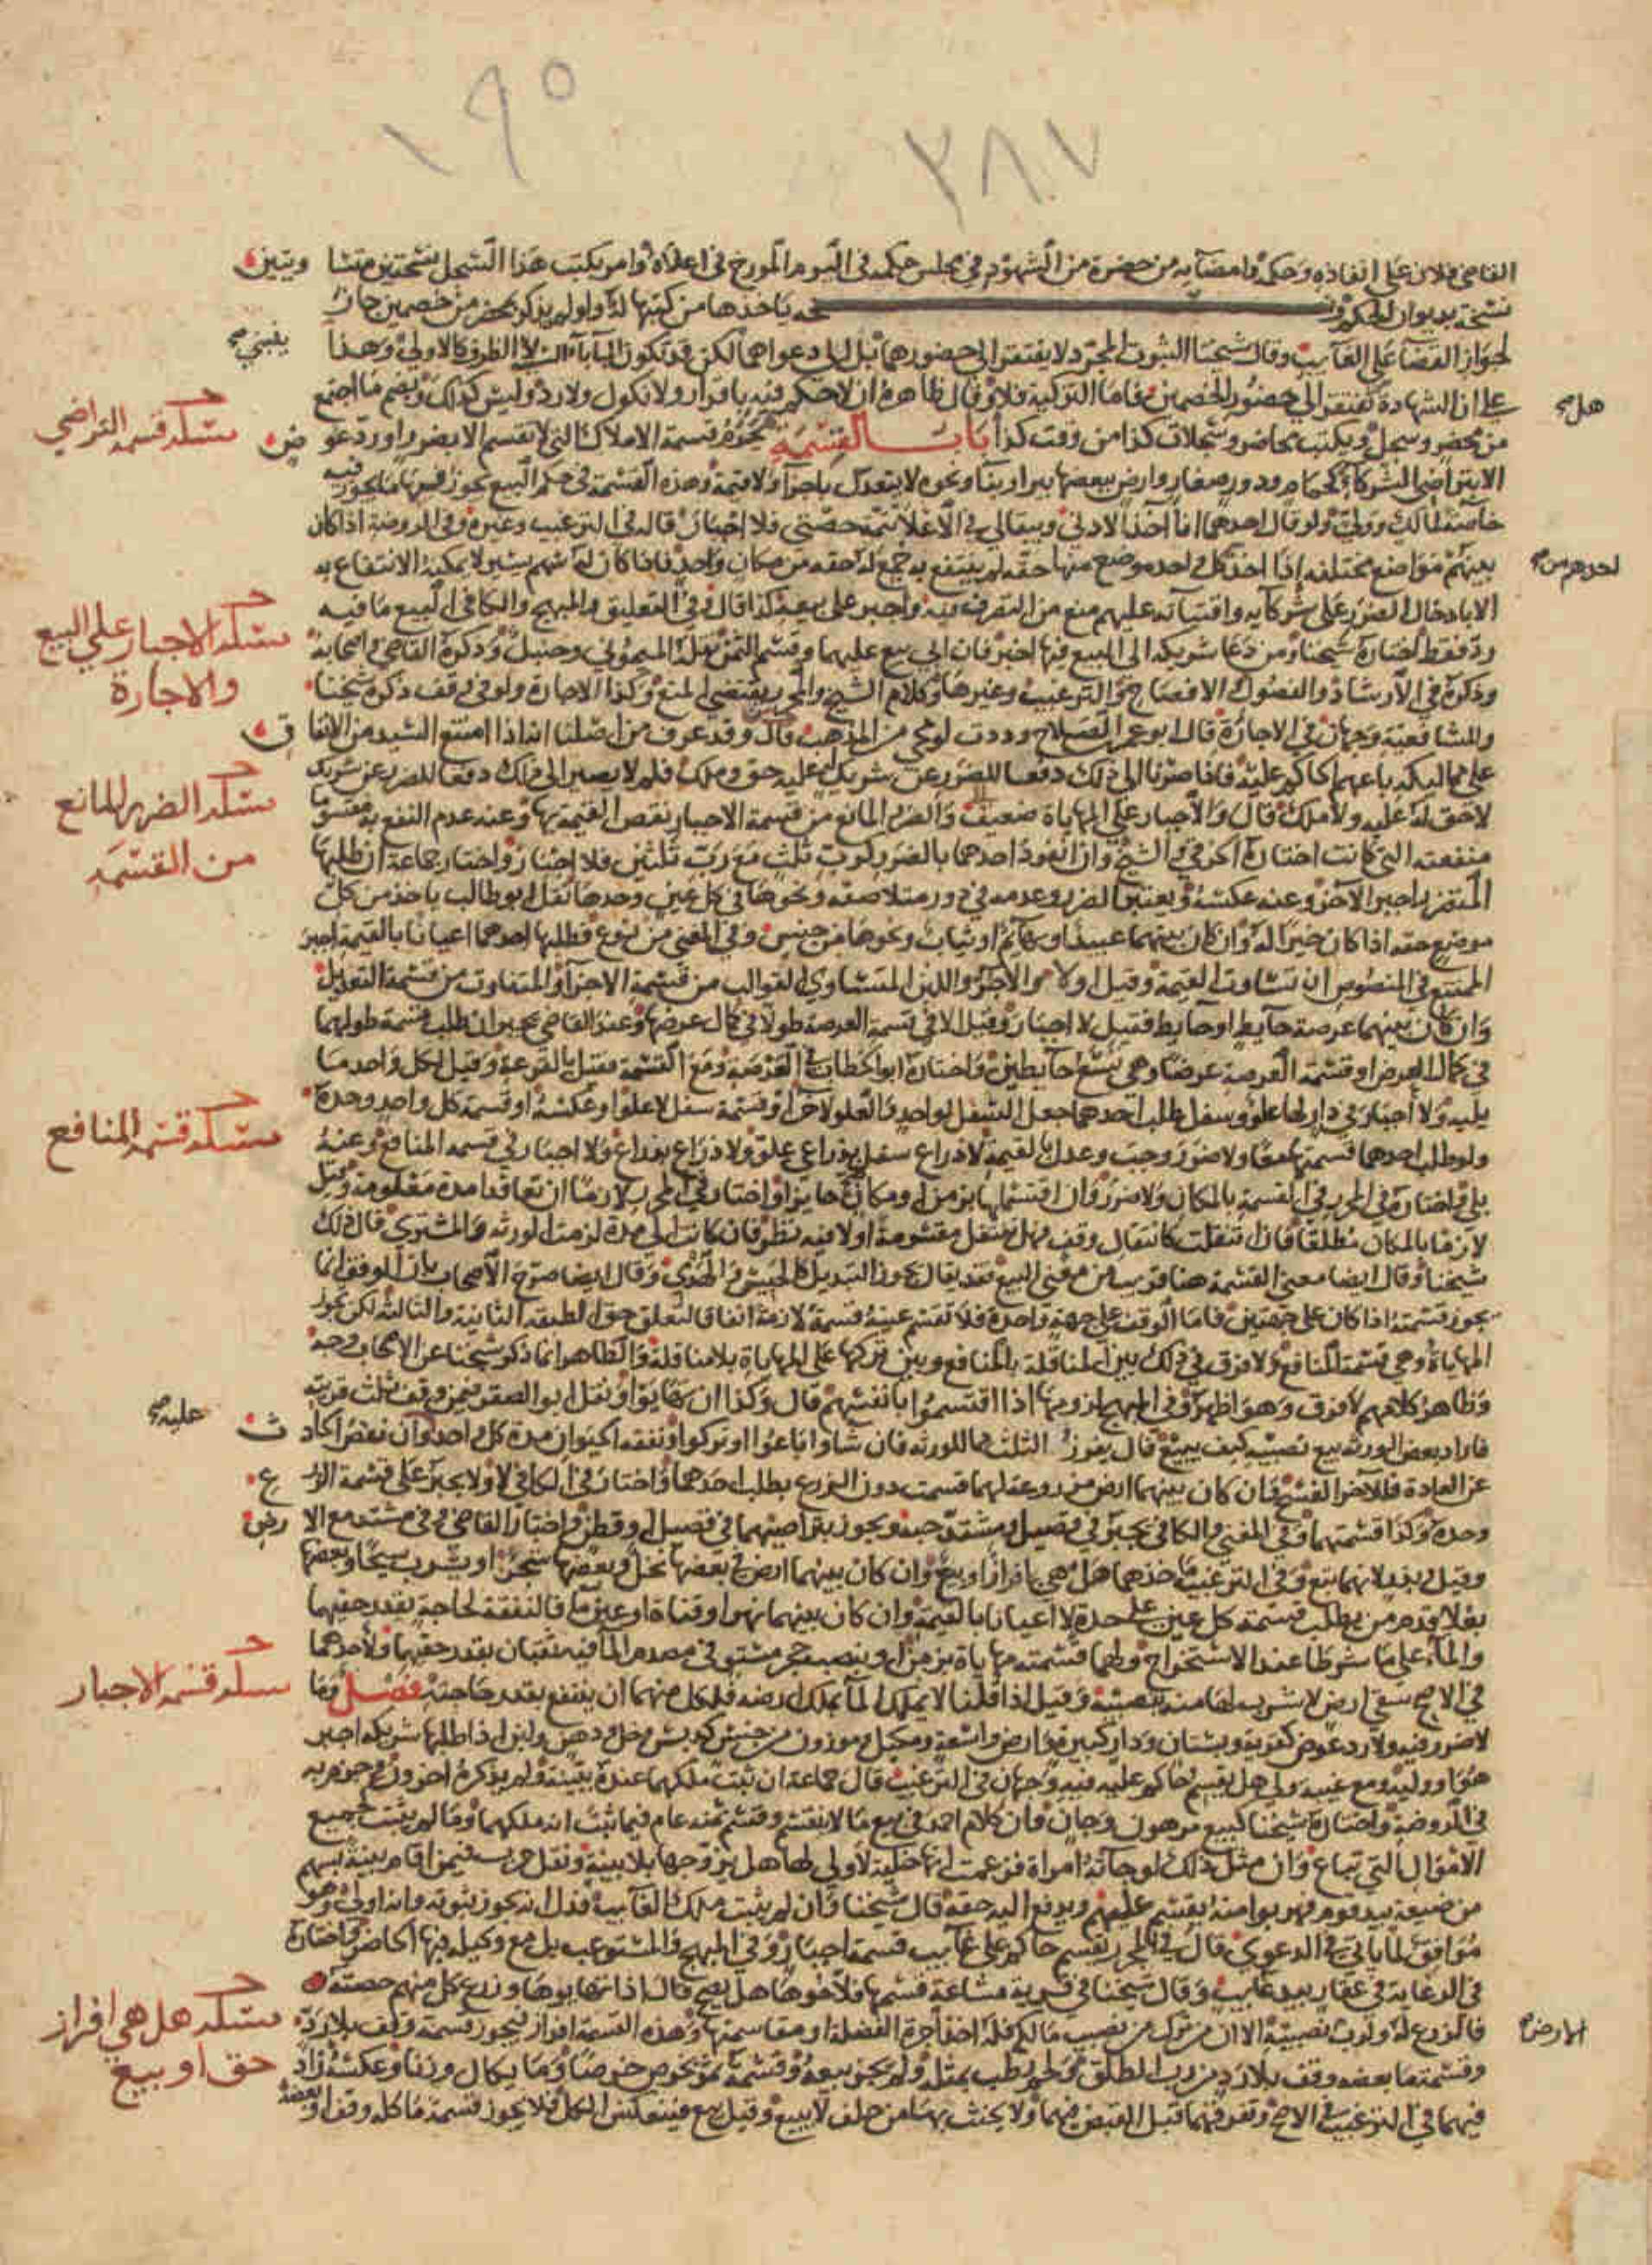 ١٩٥
٢٨٧
القاضي فلان على انفاذه وحكمه وامضايه من حضره من الشهود في مجلس حكمه في اليوم المورخ في اعلاه وامر بكتب هذا السجل نسختين متساويتين
نسخة بديوان الحكم ياخذها من كتبها له ولو لم يذكر بمحضر من خصمين جاز
لجواز القضا على الغايب وقال شيخنا الثبوت المجرد لا يفتقر الى حضورهما بل الى دعواهما لكن قد تكون الباباه الظرف كالاولى وهذا ينبني
على ان الشهادة هل تفتقر الى حضور الخصمين فاما التزكية فلا وقال ظاهره ان لا حكم فيه باقرار ولا نكول ولا رد وليس كذلك ويضم ما اجتمع
من محضر وسجل ويكتب محاضر وسجلات كذا من وقت كذا باب القسمة تجوز قسمة الاملاك التي لا تقسم الا بضرر او رد عوض
مسئلة قسمة التراضي
الا بتراضي الشركاء كحمام ودور صغار وارض ببعضها بير او بنا ونحوه لا يتعدل باجزا ولا قيمة وهذه القسمة في حكم البيع يجوز فيها ما يجوز فيه
خاصة لمالك وولي ولو قال احدهما انا آخذ الادنى ويبقى لي في الاعلا تتمة حصتي فلا اجبار قاله في الترغيب وغيره وفي الروضة اذا كان
بينهم مواضع مختلفة اذا اخذ كل واحد من موضع منها حقه لم ينتفع به جمع له حقه من مكان واحد فاذا كان لاحدهم سهم يسير لا يمكنه الانتفاع به
الا بادخال الضرر على شركايه وافتياته عليهم منع من التصرف فيه واجبر على بيعه كذا قال وفي التعليق والمبهج والكافي البيع ما فيه
رد فقط اختاره شيخنا ومن دعا شريكه الى البيع فيها اجبر فان ابى بيع عليهما وقسم الثمن نقله الميموني وحنبل وذكره القاضي واصحابه
مسئلة الاجبار على البيع
والاجارة
وذكره في الارشاد والفصول والافصاح والترغيب وغيرها وكلام الشيخ والمجد يقتضي المنع وكذا الاجارة ولو في وقف ذكره شيخنا
وللشافعية وجهان في الاجارة قال ابو عمرو بن الصلاح وددت لو محي من المذهب قال وقد عرف من اصلنا انه اذا امتنع السيد من الانفاق
على مماليكه باعهم الحاكم عليه فاذا صرنا الى ذلك دفعا للضرر عن شريك له عليه حق وملك فلم لا يصير الى ذلك دفعا للضرر عن شريك
لا حق له عليه ولا ملك قال والاجبار على المهاياة ضعيف والضرر المانع من قسمة الاجبار نقص القيمة بها وعنه عدم النفع به مقسوما
مسئلة الضرر المانع
من القسمة
منفعته التي كانت اختاره الخرقي والشيخ وان انفرد احدهما بالضرر كرب ثلث مع رب ثلثين فلا اجبار واختار جماعة ان طلبها
المتضرر اجبر الآخر وعنه عكسه ويعتبر الضرر وعدمه في دور متلاصقة ونحوها في كل عين وحدها نقل ابو طالب ياخذ من كل
موضع حقه اذا كان خيرا له وان كان بينهما عبيد او بهايم او ثياب ونحوها من جنس وفي المغني من نوع فطلبها احدهما اعيانا بالقيمة اجبر
الممتنع في المنصوص ان تساوت القيمة وقيل او لا والاجر واللبن المتساوي القوالب من قسمة الاجزا والمتفاوت من قسمة التعديل
وان كان بينهما عرصة حايط او حايط فقيل لا اجبار وقيل الا في قسمة العرصة طولا في كمال عرضها وعند القاضي يجبر ان طلب قسمة طولهما
في كمال العرض او قسمة العرصة عرضا وهي تسع حايطين واختاره ابو الخطاب في العرصة ومع القسمة فقيل بالقرعة وقيل لكل واحد ما
يليه ولا اجبار في دار لها علو وسفل طلب احدهما جعل السفل لواحد والعلو لآخر او قسمة سفل لا علو او عكسه او قسمة كل واحد وحده
ولو طلب احدهما قسمتها معا ولا ضرر وجب وعدل بالقيمة لا ذراع سفل بذراعي علو ولا ذراع بذراع ولا اجبار في قسمة المنافع وعنه
مسئلة قسمة المنافع
بلى واختاره في المحرر في القسمة بالمكان ولا ضرر وان اقتسماها بزمن او مكان صح جايزا واختار في المحرر لازما ان تعاقدا مدة معلومة وقيل
لازما بالمكان مطلقا فان انتقلت كانتقال وقف فهل تنتقل مقسومة او لا فيه نظر فان كانت الى مدة لزمت الورثة والمشتري قال ذلك
شيخنا وقال ايضا معنى القسمة هنا قريب من معنى البيع فقد يقال يجوز التبديل كالحبيس والهدي وقال ايضا صرح الاصحاب بان الوقف انما
يجوز قسمته اذا كان على جهتين فاما الوقف على جهة واحدة فلا تقسم عينه قسمة لازمة اتفاقا لتعلق حق الطبقة الثانية والثالثة لكن تجوز
المهاياة وهي قسمة المنافع ولا فرق في ذلك بين المناقلة بالمنافع وبين تركها على المهاياة بلا مناقلة والظاهر ان ما ذكر شيخنا عن الاصحاب وجه
وظاهر كلامهم لا فرق وهو اظهر وفي المبهج لزومها اذا اقتسموا بانفسهم قال وكذا ان تهايوا ونقل ابو الصقر فيمن وقف ثلث قريته
فاراد بعض الورثة بيع نصيبه كيف يبيع قال يفرز الثلث مما للورثة فان شاوا باعوا او تركوا ونفقة الحيوان مدة كل واحد عليه وان نقص الحادث
عن العادة فللآخر الفسخ فان كان بينهما ارض مزروعة لهما قسمت دون الزرع بطلب احدهما واختار في الكافي لا ولا يجبر على قسمة الزرع
وحده وكذا قسمتهما وفي المغني والكافي يجبر في قصيل ومشتد حبه ويجوز بتراضيهما في قصيل او قطن واختار القاضي وفي مشتد مع الارض
وقيل وبذر لانهما تبع وفي الترغيب ماخذهما هل هي افراز او بيع وان كان بينهما ارض في بعضها نخل وبعضها شجر او يشرب سيحا وبعضها
بعلا قدم من يطلب قسمة كل عين على حدة لا اعيانا بالقيمة وان كان بينهما نهر او قناة او عين ما فالنفقة لحاجة بقدر حقهما
والماء على ما شرطا عند الاستخراج ولهما قسمته مهاياة بزمن او بنصب حجر مستو في مصدم الما فيه ثقبان بقدر حقيهما ولاحدهما
في الاصح سقي ارض لا شرب لها منه بنصيبه وقيل اذا قلنا لا يملك الما بملك ارضه فلكل منهما ان ينتفع بقدر حاجته فصل وما
مسئلة قسمة الاجبار
لا ضرر فيه ولا رد عوض كقرية وبستان ودار كبيرة وارض واسعة ومكيل وموزون من جنس كدبس وخل ودهن ولبن اذا طلبها شريكه اجبر
هو او وليه ومع غيبة ولي هل يقسم حاكم عليه فيه وجهان في الترغيب قال جماعة ان ثبت ملكهما عنده ببينة ولم يذكره اخرون وجزم به
في الروضة واختاره شيخنا كبيع مرهون وجان وان كلام احمد في بيع ما لا ينقسم وقسم ثمنه عام فيما ثبت انه ملكهما وما لم يثبت كجميع
الاموال التي تباع وان مثل ذلك لو جاته امراة فزعمت انها خلية لا ولي لها هل يزوجها بلا بينة ونقل حرب فيمن اقام بينة بسهم
من ضيعة بيد قوم فهربوا منه يقسم عليهم ويدفع اليه حقه قال شيخنا وان لم يثبت ملك الغايب فدل انه يجوز ثبوته وانه اولى وهو
موافق لما ياتي في الدعوى قال في المحرر يقسم حاكم على غايب قسمة اجبار وفي المبهج والمستوعب بل مع وكيله فيها الحاضر واختاره
في الرعاية في عقار بيد غايب وقال شيخنا في قرية مشاعة قسمها فلاحوها هل يصح قال اذا تهايوها وزرع كل منهم حصته
فالزرع له ولرب الارض نصيبه الا ان من ترك من نصيب مالكه فله اخذ اجرة الفضلة او مقاسمتها وهذه القسمة افراز فيجوز قسمة وقف بلا رد
مسئلة هل هي افراز
حق او بيع
وقسمة ما بعضه وقف بلا رد من رب الطلق ولحم رطب بمثله ولم يجز بيعه وقسمة ثمر يخرص خرصا وما يكال وزنا وعكسه زاد
فيهما في الترغيب في الاصح وتفرقهما قبل القبض فيهما ولا يحنث بها من حلف لا يبيع وقيل بيع فينعكس الكل فلا يجوز قسمة ما كله وقف او بعضه